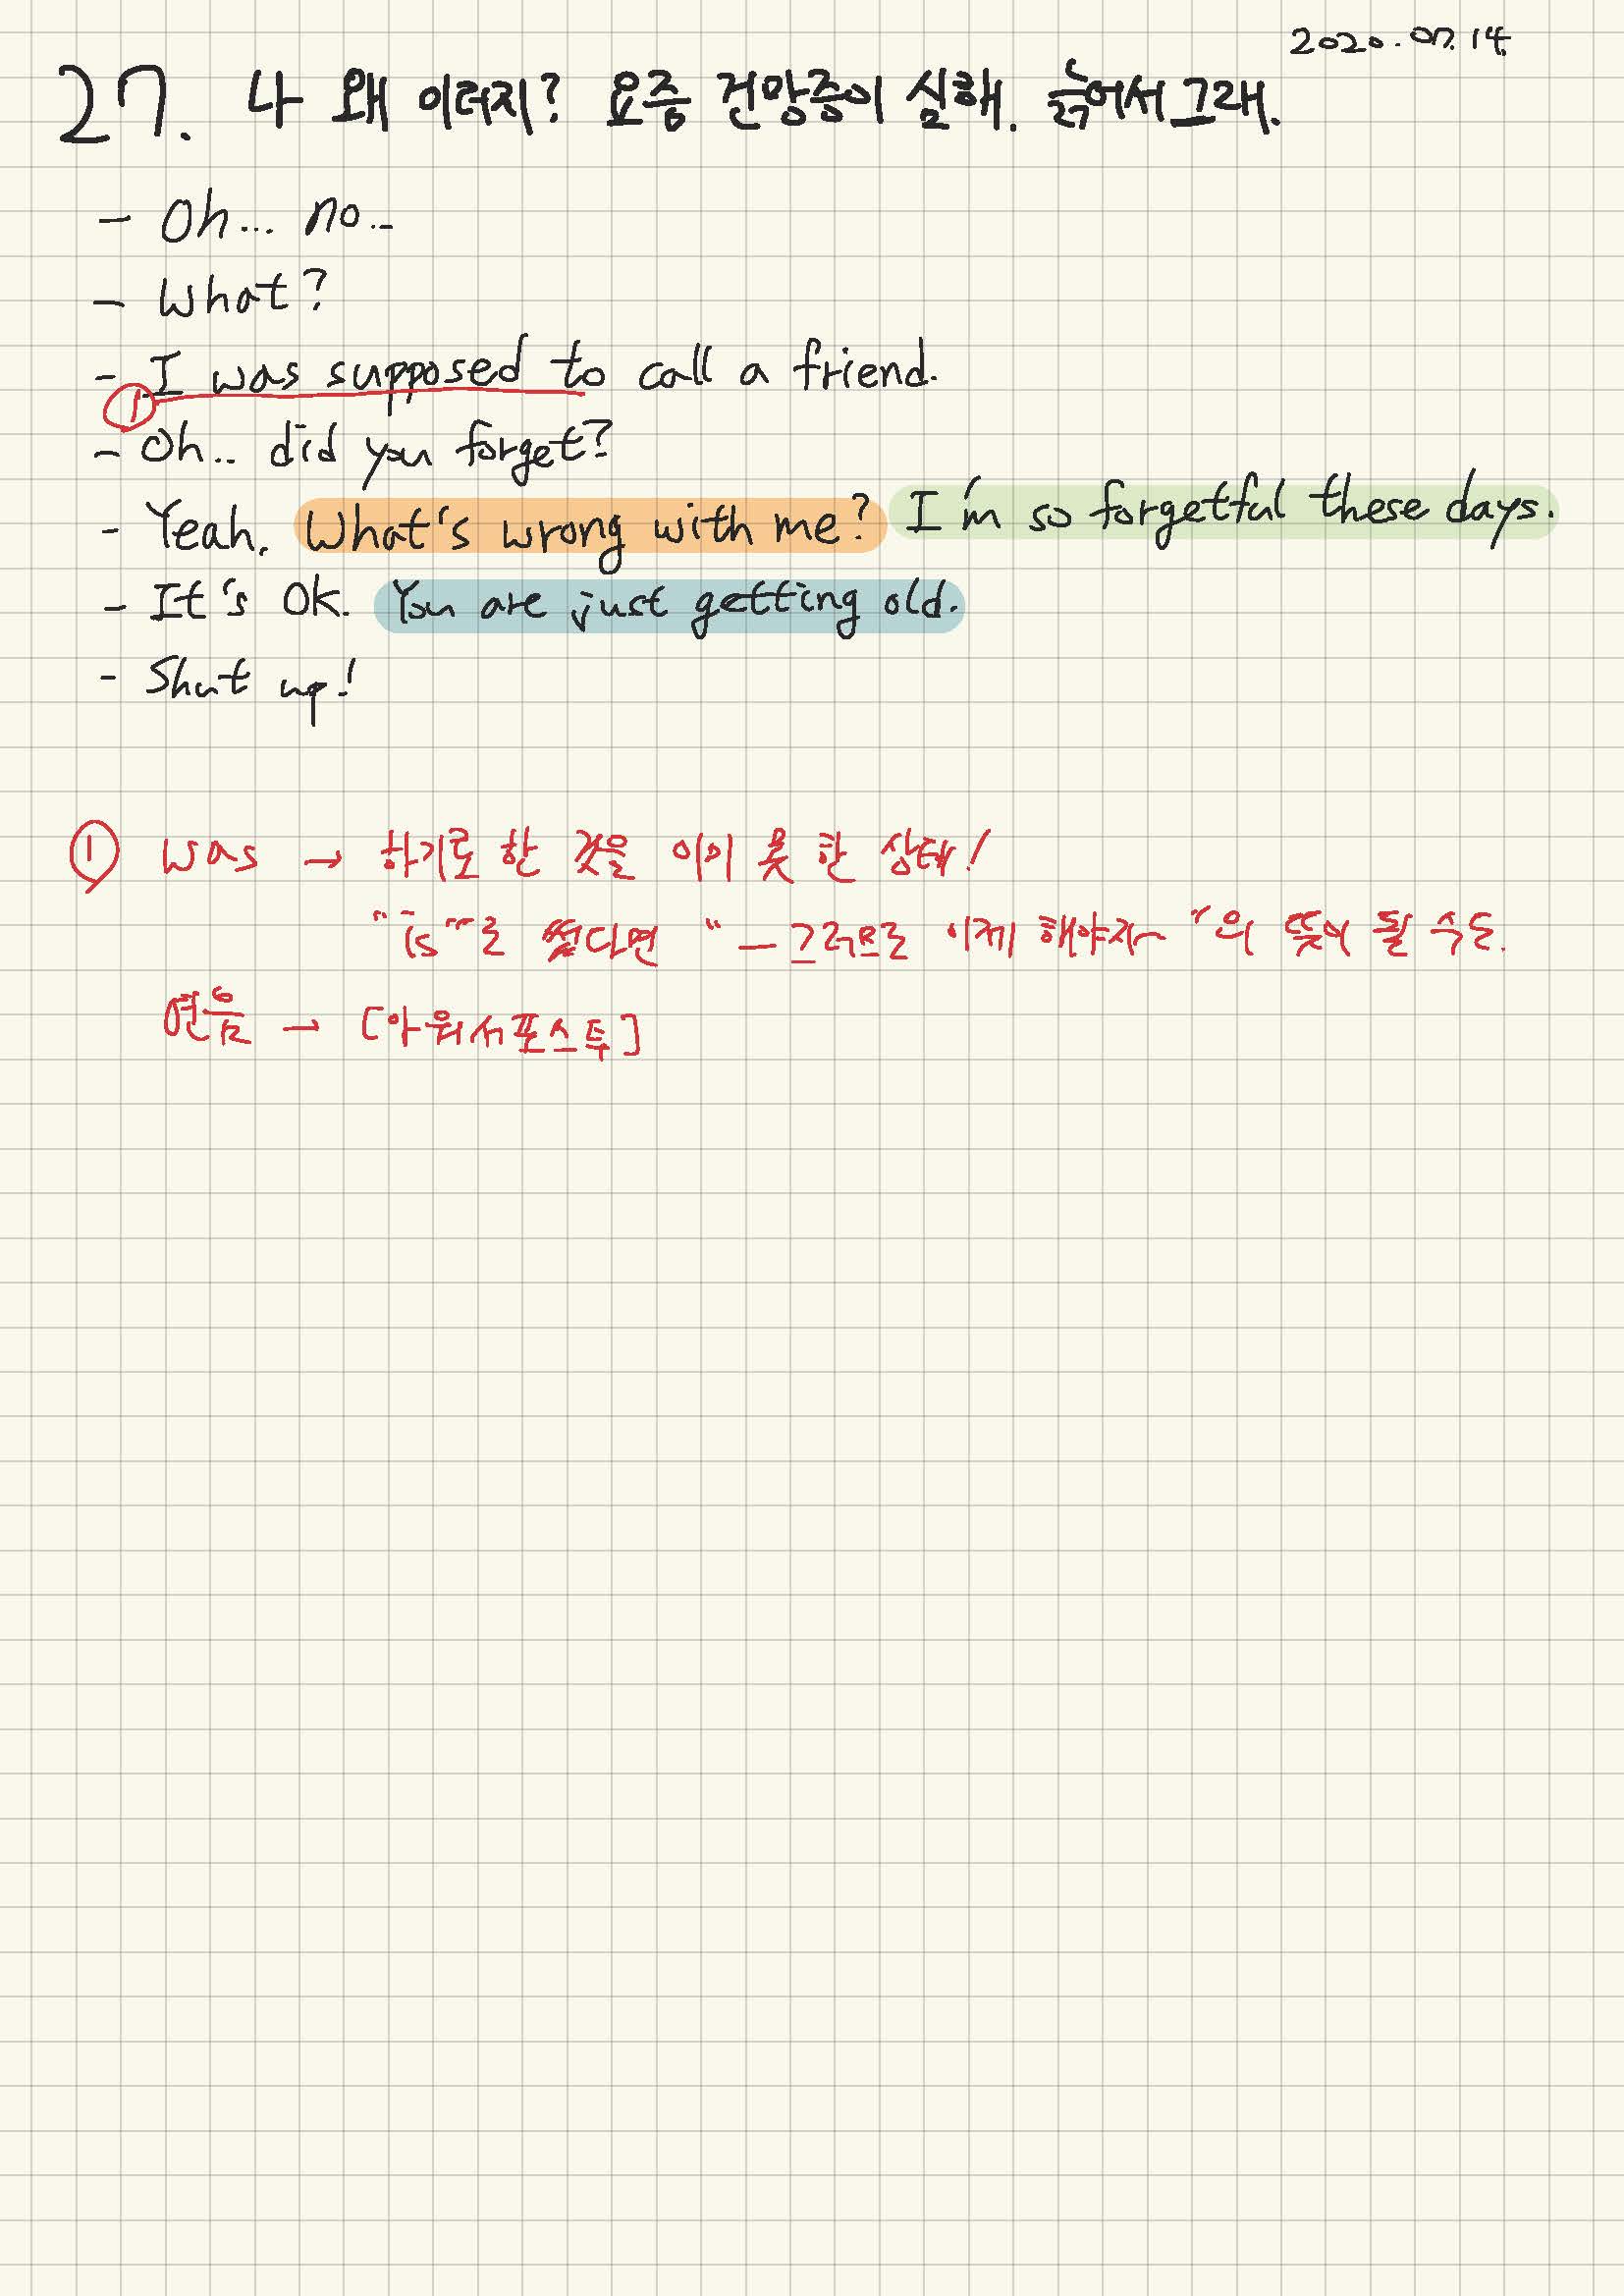 2020.07.14.
27. 나 왜 이러지? 요즘 건망증이 심해. 늙어서 그래.
- Oh... no..
- What?
- I was supposed to call a friend.
①
- Oh.. did you forget?
- Yeah. What's wrong with me? I'm so forgetful these days.
- It's OK. You are just getting old.
- Shut up!
① was → 하기로 한 것을 이미 못 한 상태!
"is"로 쓴다면 "— 그러므로 이제 해야지~"의 뜻이 될 수도.
연음 → [아워서포스투]